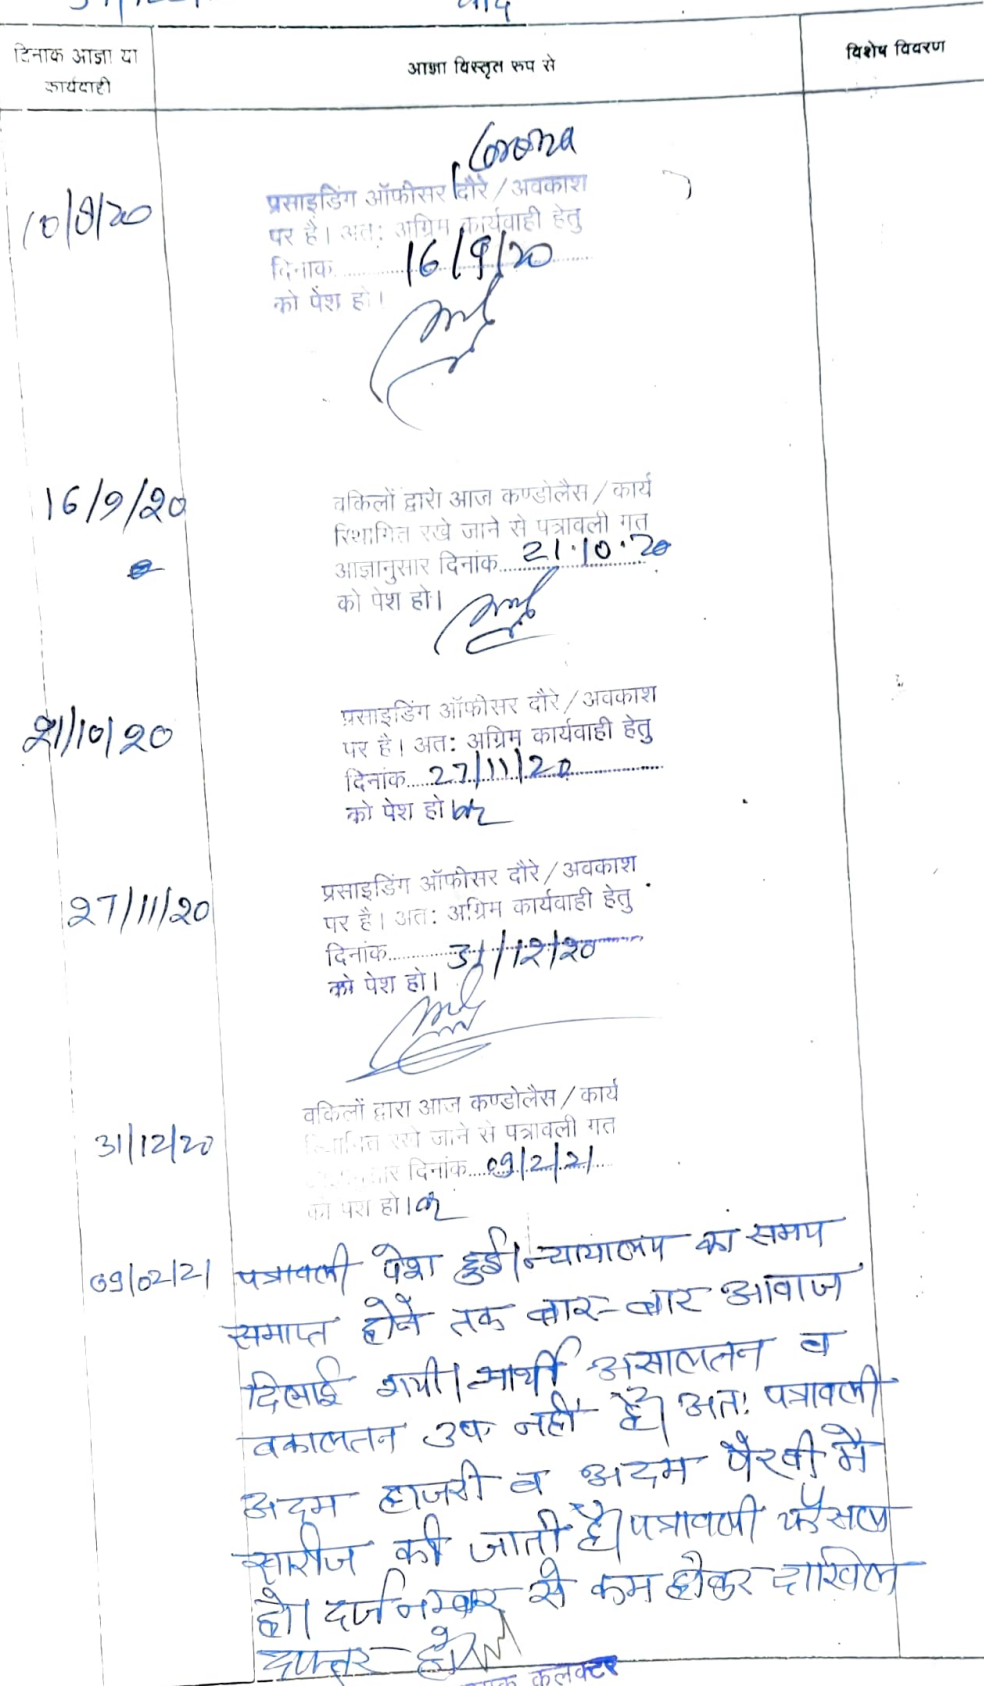 वाद
दिनाक आज्ञा या
कार्यवाही
आज्ञा विस्तृत रूप से
विशेष विवरण
Corona
10/8/20
प्रसाइडिंग ऑफीसर दौरे / अवकाश
पर है। अतः अग्रिम कार्यवाही हेतु
दिनाक 16/9/20
को पेश हो।
16/9/20
वकिलों द्वारा आज कण्डोलैस / कार्य
स्थिगित रखे जाने से पत्रावली गत
आज्ञानुसार दिनांक 21.10.20
को पेश हो।
21/10/20
प्रसाइडिंग ऑफीसर दौरे / अवकाश
पर है। अतः अग्रिम कार्यवाही हेतु
दिनांक 27/11/20
को पेश हो
27/11/20
प्रसाइडिंग ऑफीसर दौरे / अवकाश
पर है। अतः अग्रिम कार्यवाही हेतु
दिनांक 31/12/20
को पेश हो।
31/12/20
वकिलों द्वारा आज कण्डोलैस / कार्य
रखे जाने से पत्रावली गत
दिनांक 09/2/21
को पेश हो।
09/02/21
पत्रावली पेश हुई। न्यायालय का समय
समाप्त होने तक बार-बार आवाज
दिलाई गयी। प्रार्थी असालतन व
वकालतन उप. नहीं है। अतः पत्रावली
अदम हाजरी व अदम पैरवी में
खारीज की जाती है। पत्रावली फैसल
हो। दर्ज नम्बर से कम होकर दाखिल
दफ्तर हो।
कलक्टर